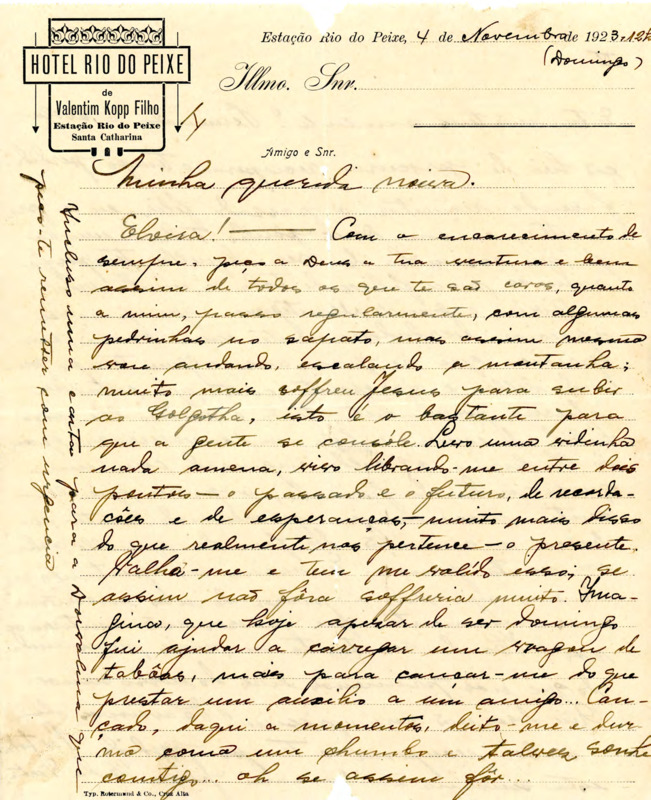 HOTEL RIO DO PEIXE
de
Valentim Kopp Filho
Estação Rio do Peixe
Santa Catharina
Estação Rio do Peixe, 4 de Novembro de 1923,
(Domingo)
Illmo. Snr.
Amigo e Snr.
Minha querida noiva.
Eloisa! — Com o encarecimento de
sempre, peço a Deus a tua ventura e bem
assim de todos os que te são caros, quanto
a mim, passo regularmente, com algumas
pedrinhas no sapato, mas assim mesmo
vou andando, escalando a montanha;
muito mais soffreu Jesus para subir
ao Golgotha, isto é o bastante para
que a gente se consóle. Levo uma vidinha
nada amena, vivo librando-me entre dois
pontos — o passado e o futuro, de recorda-
ções e de esperanças, — muito mais disso
do que realmente nos pertence — o presente.
Valha-me e tem me valido isso; se
assim não fôra soffreria muito. Ima-
gina, que hoje apezar de ser domingo
fui ajudar a carregar um vagon de
tabôas, mais para cançar-me do que
prestar um auxilio a um amigo... Can-
çado, daqui a momentos, deito-me e dur-
mo como um chumbo e talvez sonhe
comtigo... oh se assim fôr...
Incluso uma carta para a que
peço-te remetter com urgencia
Typ. Rotermund & Co., Cruz Alta